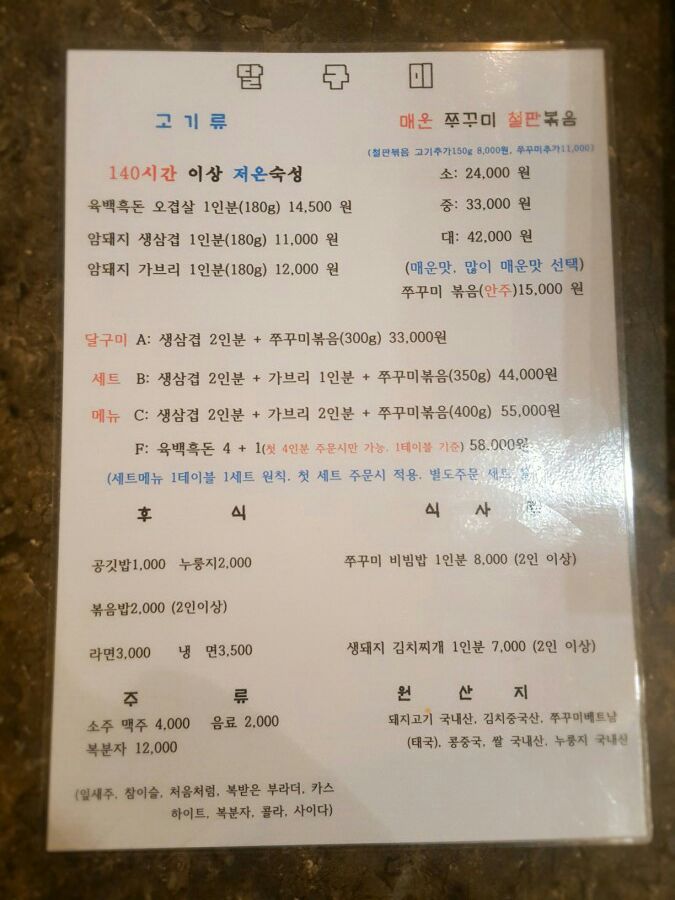 달 구 미
고 기 류
140시간 이상 저온숙성
육백흑돈 오겹살 1인분(180g) 14,500 원
암돼지 생삼겹 1인분(180g) 11,000 원
암돼지 가브리 1인분(180g) 12,000 원
매운 쭈꾸미 철판볶음
(철판볶음 고기추가150g 8,000원, 쭈꾸미추가11,000)
소: 24,000 원
중: 33,000 원
대: 42,000 원
(매운맛, 많이 매운맛 선택)
쭈꾸미 볶음(안주)15,000 원
달구미 A: 생삼겹 2인분 + 쭈꾸미볶음(300g) 33,000원
세트 B: 생삼겹 2인분 + 가브리 1인분 + 쭈꾸미볶음(350g) 44,000원
메뉴 C: 생삼겹 2인분 + 가브리 2인분 + 쭈꾸미볶음(400g) 55,000원
F: 육백흑돈 4 + 1(첫 4인분 주문시만 가능. 1테이블 기준) 58.000원
(세트메뉴 1테이블 1세트 원칙. 첫 세트 주문시 적용. 별도주문 세트
후 식
공깃밥1,000 누룽지2,000
볶음밥2,000 (2인이상)
라면3,000 냉 면3,500
식 사
쭈꾸미 비빔밥 1인분 8,000 (2인 이상)
생돼지 김치찌개 1인분 7,000 (2인 이상)
주 류
소주 맥주 4,000 음료 2,000
복분자 12,000
(잎새주, 참이슬, 처음처럼, 복받은 부라더, 카스
하이트, 복분자, 콜라, 사이다)
원 산 지
돼지고기 국내산, 김치중국산, 쭈꾸미베트남
(태국), 콩중국, 쌀 국내산, 누룽지 국내산